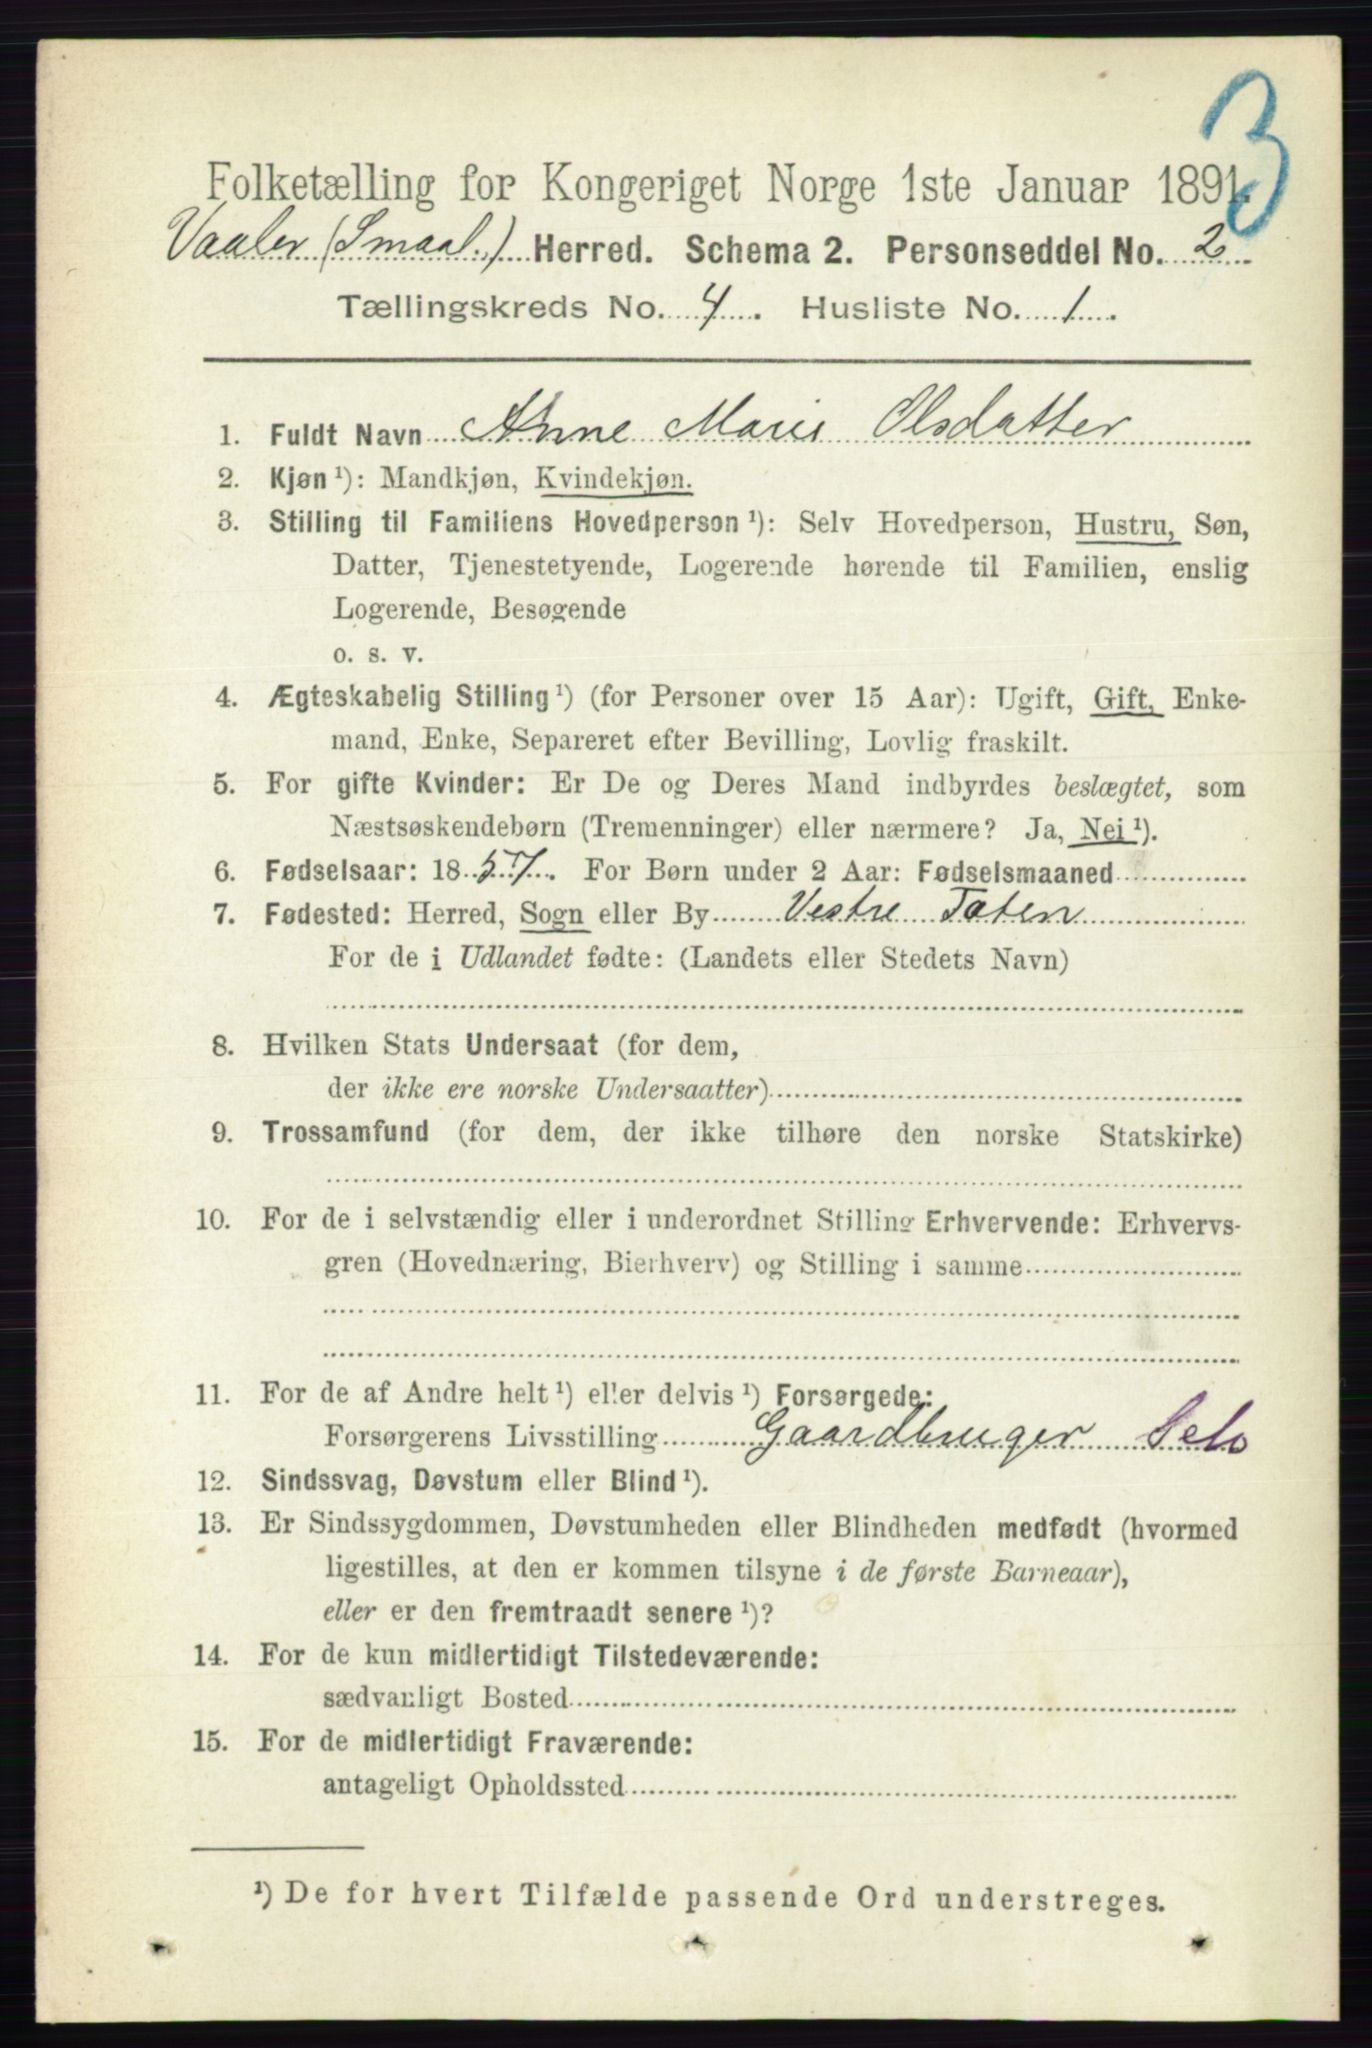 3
Folketælling for Kongeriget Norge 1ste Januar 1891.
Vaaler (Smaal.) Herred. Schema 2. Personseddel No. 2.
Tællingskreds No. 4. Husliste No. 1.
1. Fuldt Navn Anne Marie Olsdatter
2. Kjøn ¹): Mandkjøn, Kvindekjøn.
3. Stilling til Familiens Hovedperson ¹): Selv Hovedperson, Hustru, Søn,
Datter, Tjenestetyende, Logerende hørende til Familien, enslig
Logerende, Besøgende
o. s. v.
4. Ægteskabelig Stilling ¹) (for Personer over 15 Aar): Ugift, Gift, Enke-
mand, Enke, Separeret efter Bevilling, Lovlig fraskilt.
5. For gifte Kvinder: Er De og Deres Mand indbyrdes beslægtet, som
Næstsøskendebørn (Tremenninger) eller nærmere? Ja, Nei ¹).
6. Fødselsaar: 1857. For Børn under 2 Aar: Fødselsmaaned
7. Fødested: Herred, Sogn eller By Vestre Toten
For de i Udlandet fødte: (Landets eller Stedets Navn)
8. Hvilken Stats Undersaat (for dem,
der ikke ere norske Undersaatter)
9. Trossamfund (for dem, der ikke tilhøre den norske Statskirke)
10. For de i selvstændig eller i underordnet Stilling Erhvervende: Erhvervs-
gren (Hovednæring, Bierhverv) og Stilling i samme
11. For de af Andre helt ¹) eller delvis ¹) Forsørgede:
Forsørgerens Livsstilling Gaardbruger Selv
12. Sindssvag, Døvstum eller Blind ¹).
13. Er Sindssygdommen, Døvstumheden eller Blindheden medfødt (hvormed
ligestilles, at den er kommen tilsyne i de første Barneaar),
eller er den fremtraadt senere ¹)?
14. For de kun midlertidigt Tilstedeværende:
sædvanligt Bosted
15. For de midlertidigt Fraværende:
antageligt Opholdssted
¹) De for hvert Tilfælde passende Ord understreges.